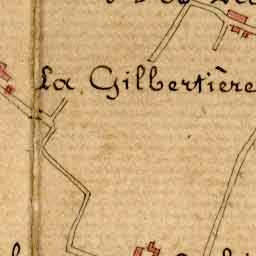 La Gilbertière